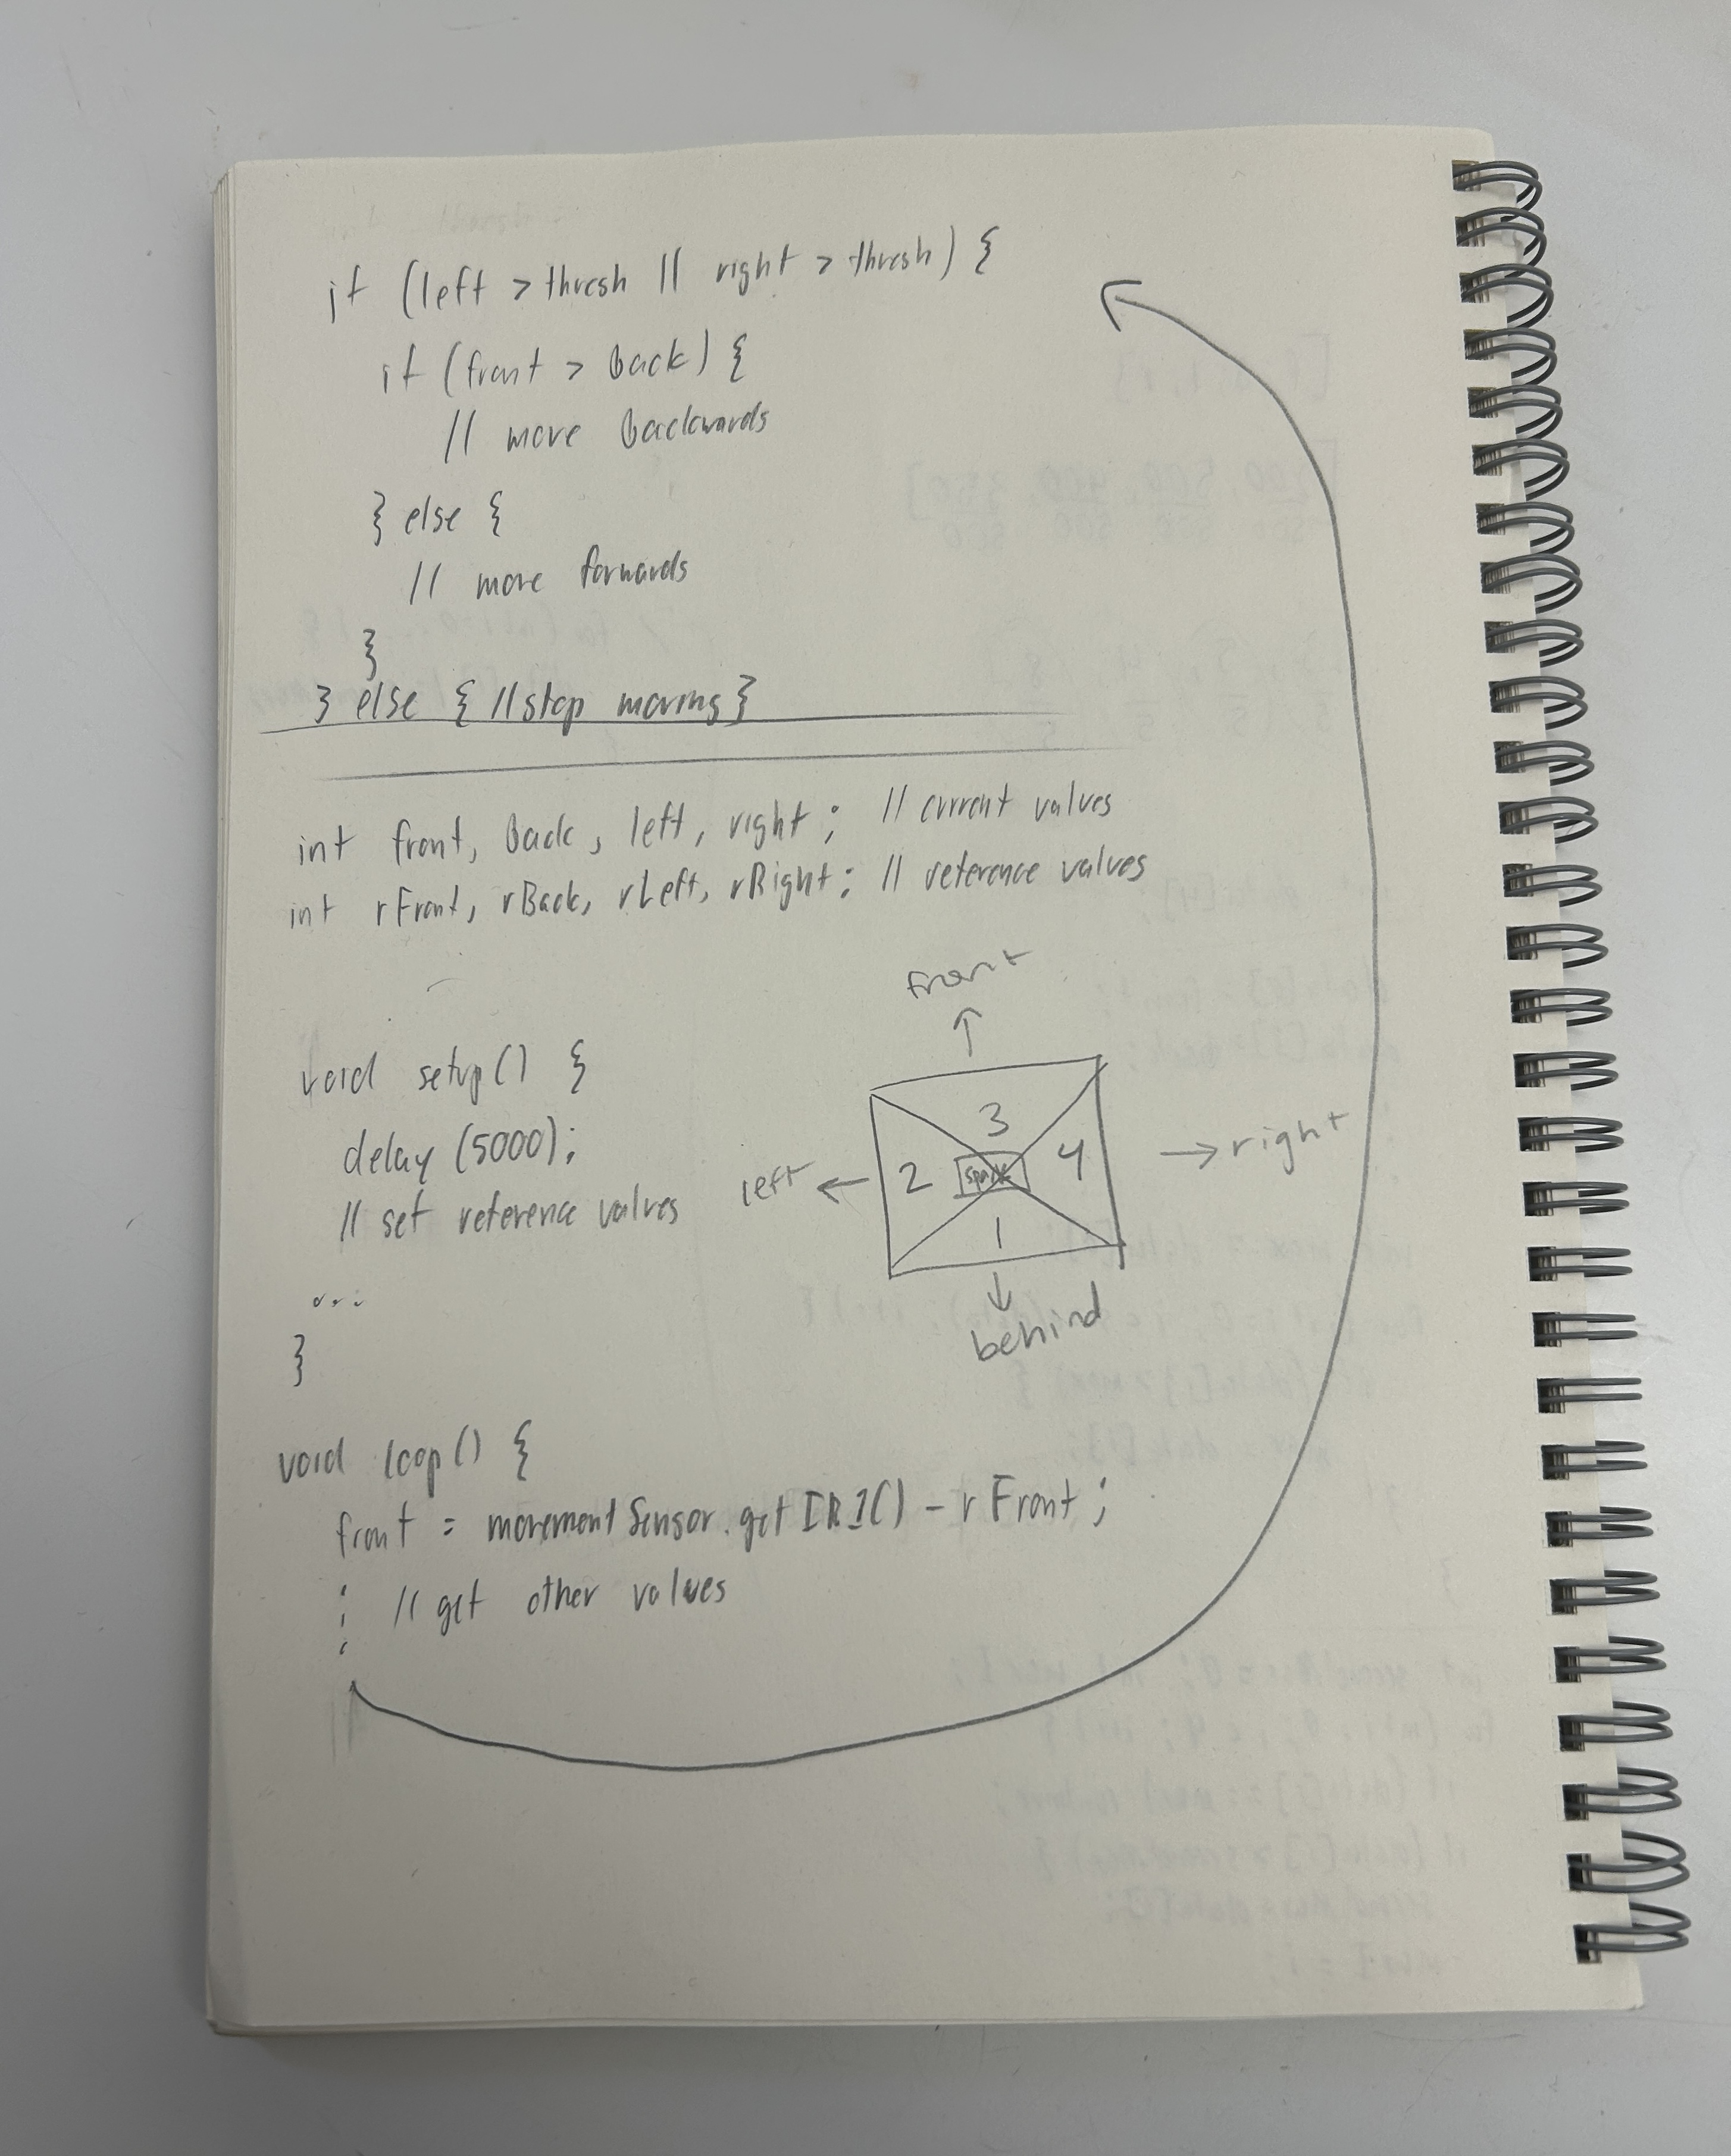 if (left > thresh || right > thresh) {
if (front > back) {
// move backwards
} else {
// move forwards
}
} else { // stop moving }
int front, back, left, right; // current values
int rFront, rBack, rLeft, rRight; // reference values
front
void setup() {
delay (5000);
// set reference values
...
}
3
2
4
1
left
right
behind
void loop() {
front = movementSensor.getIR1() - rFront;
: // get other values